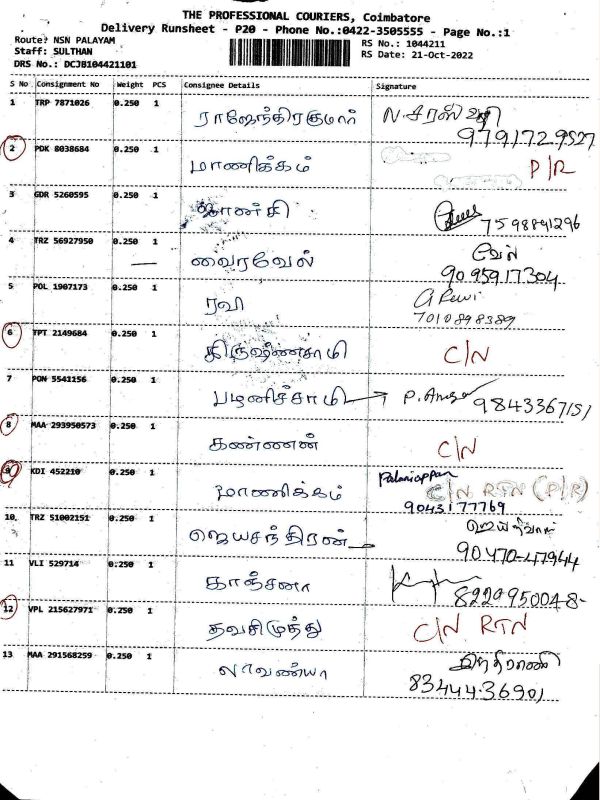 THE PROFESSIONAL COURIERS, Coimbatore
Delivery Runsheet - P20 - Phone No.:0422-3505555 - Page No.:1
Route: NSN PALAYAM
RS No.: 1044211
Staff: SULTHAN
RS Date: 21-Oct-2022
DRS No.: DCJB104421101
S No Consignment No Weight PCS Consignee Details Signature
1 TRP 7871026 0.250 1 ராஜேந்திரகுமார் N. சரஸ்வதி
9791729527
2 PDK 8038684 0.250 1 மாணிக்கம் P/R
3 GDR 5260595 0.250 1 ஜான்சி 7598891296
4 TRZ 56927950 0.250 1 வைரவேல் வேல்
9095917304
5 POL 1907173 0.250 1 ரவி
7010898389
6 TPT 2149684 0.250 1 கிருஷ்ணசாமி C/N
7 PON 5541156 0.250 1 பழனிச்சாமி 9843367151
8 MAA 293950573 0.250 1 கண்ணன் C/N
9 KDI 452210 0.250 1 மாணிக்கம் Palaniappan
C/N RTN (P/R)
9043177769
10 TRZ 51002151 0.250 1 ஜெயசந்திரன்
90470-47944
11 VLI 529714 0.250 1 காஞ்சனா 8220950048
12 VPL 215627971 0.250 1 தவசிமுத்து C/N RTN
13 MAA 291568259 0.250 1 லாவண்யா இந்திராணி
8344436901